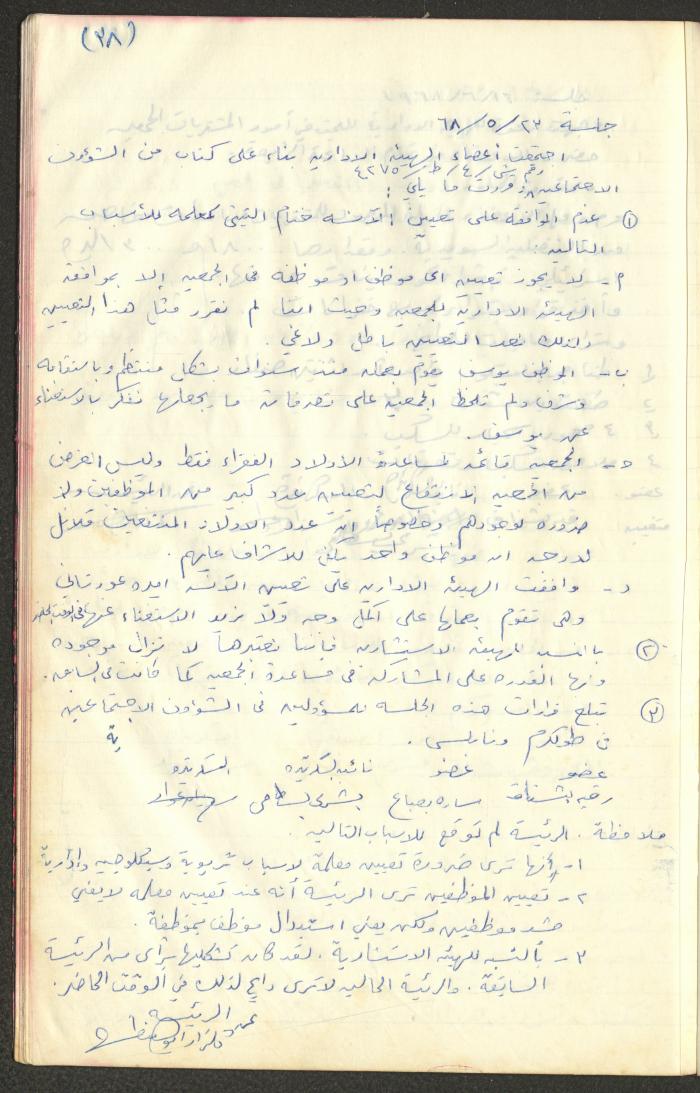 (٣٨)
جلسة ٢٣/٥/٦٨
اجتمعت أعضاء الهيئة الادارية بناء على كتاب من الشؤون
رقم ش/٤/ط/٤٢٧٥
الاجتماعية وقررت ما يلي:
① عدم الموافقة على تعيين الآنسة ختام التيتي كمعلمة للأسباب
التالية
أ - لا يجوز تعيين اي موظف او موظفه في الجمعيه إلا بموافقة
الهيئة الادارية للجمعيه وحيث اننا لم نقرر مثل هذا التعيين
ولذلك نعد التعيين باطل ولاغي.
ب - الموظف يوسف يقوم بعمله منذ سنوات بشكل منتظم وباستقامه
وشرف ولم تلحظ الجمعيه على تصرفاته ما يجعلها تفكر بالاستغناء
عن يوسف.
ج - الجمعيه قائمه لمساعدة الأولاد الفقراء فقط وليس الغرض
من الجمعيه الانتفاع لتعيين عدد كبير من الموظفين ولا
ضروره لوجودهم وخصوصاً ان عدد الاولاد المنتفعين قلائل
لدرجة ان موظف واحد يكفي للاشراف عليهم.
د - وافقت الهيئة الادارية على تعيين الآنسه ايده عورتاني
وهي تقوم بعملها على اكمل وجه ولا نريد الاستغناء عنها في الوقت الحاضر
② بالنسبه للهيئه الاستشاريه فإننا نعتبرها لا تزال موجوده
ولها القدره على المشاركه في مساعدة الجمعيه كما كانت في السابق.
③ تبلغ قرارات هذه الجلسه للمسؤولين في الشؤون الاجتماعية
في طولكرم ونابلس.
عضو عضو نائبة السكرتيره السكرتيره
رقيه ساره بشرى
ملاحظة. الرئيسة لم توقع للاسباب التاليه.
١- أنها ترى ضرورة تعيين معلمة لاسباب تربوية وسيكلوجيه واداريه
٢- تعيين الموظفين ترى الرئيسة أنه عند تعيين معلمه لا يعني
حشد موظفين ولكن يعني استبدال موظف بموظفة.
٣- بالنسبه للهيئه الاستشارية. لقد كان تشكيلها برأي من الرئيسة
السابقة. والرئيسة الحاليه لا ترى داع لذلك في الوقت الحاضر.
الرئيسه